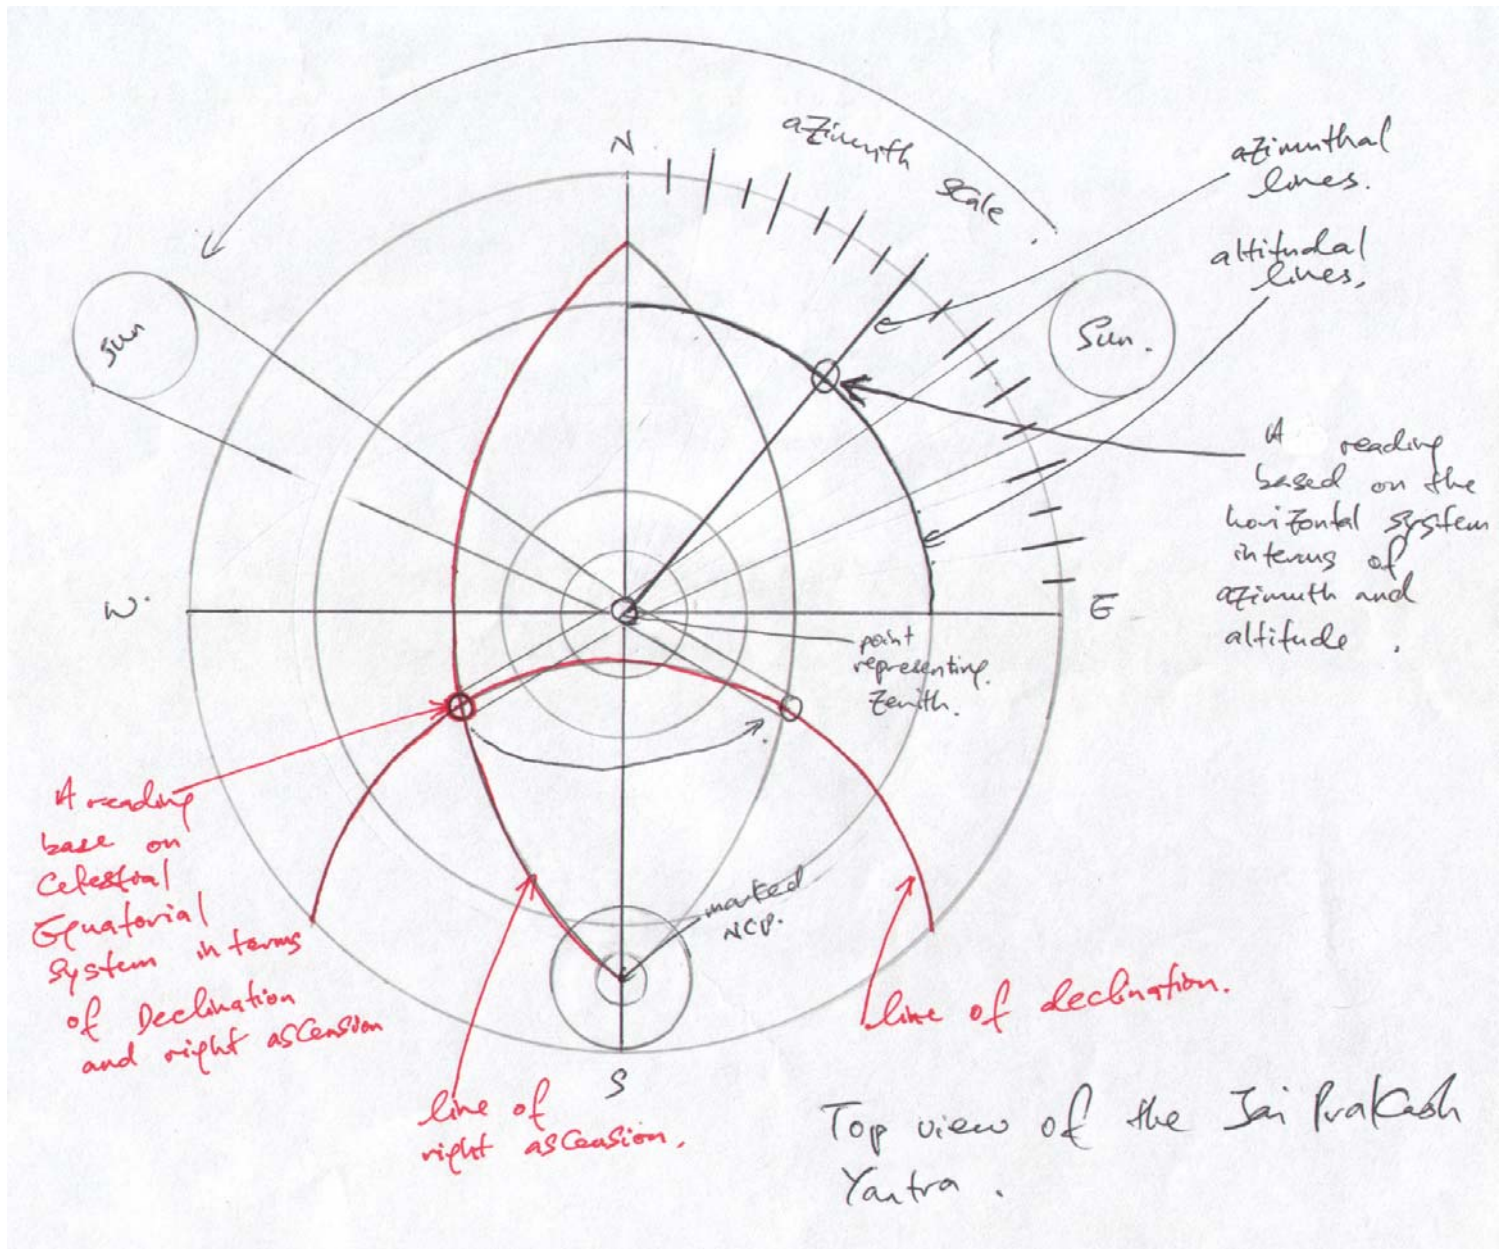 N
azimuth
scale
azimuthal
lines.
altitudal
lines.
Sun
Sun.
A reading
based on the
horizontal system
in terms of
azimuth and
altitude.
W.
E
point
representing.
Zenith.
A reading
base on
Celestial
Equatorial
System in terms
of Declination
and right ascension
marked
NCP.
line of declination.
S
line of
right ascension.
Top view of the Jai Prakash
Yantra.